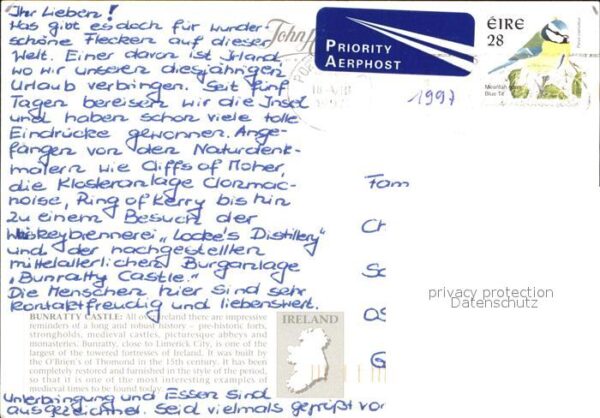 Ihr Lieben!
Was gibt es doch für wunder-
schöne Flecken auf dieser
Welt. Einer davon ist Irland
wo wir unseren diesjährigen
Urlaub verbringen. Seit fünf
Tagen bereisen wir die Insel
und haben schon viele tolle
Eindrücke gewonnen. Ange-
fangen von den Naturdenk-
malern wie Cliffs of Moher,
die Klosteranlage Clonmac-
noise, Ring of Kerry bis hin
zu einem Besuch der
Whiskeybrennerei „Locke's Distillery"
und der nachgestellten
mittelalterlichen Burganlage
„Bunratty Castle."
Die Menschen hier sind sehr
kontaktfreudig und liebenswert.
BUNRATTY CASTLE: All over Ireland there are impressive
reminders of a long and robust history – pre-historic forts,
strongholds, medieval castles, picturesque abbeys and
monasteries. Bunratty, close to Limerick City, is one of the
largest of the towered fortresses of Ireland. It was built by
the O'Brien's of Thomond in the 15th century. It has been
completely restored and furnished in the style of the period,
so that it is one of the most interesting examples of
medieval times to be found today.
Unterbringung und Essen sind
ausgezeichnet. Seid vielmals gegrüßt von
John
PRIORITY
AERPHOST
ÉIRE
28
Blue Tit
1997
IRELAND
Fam
Ch
privacy protection
Datenschutz